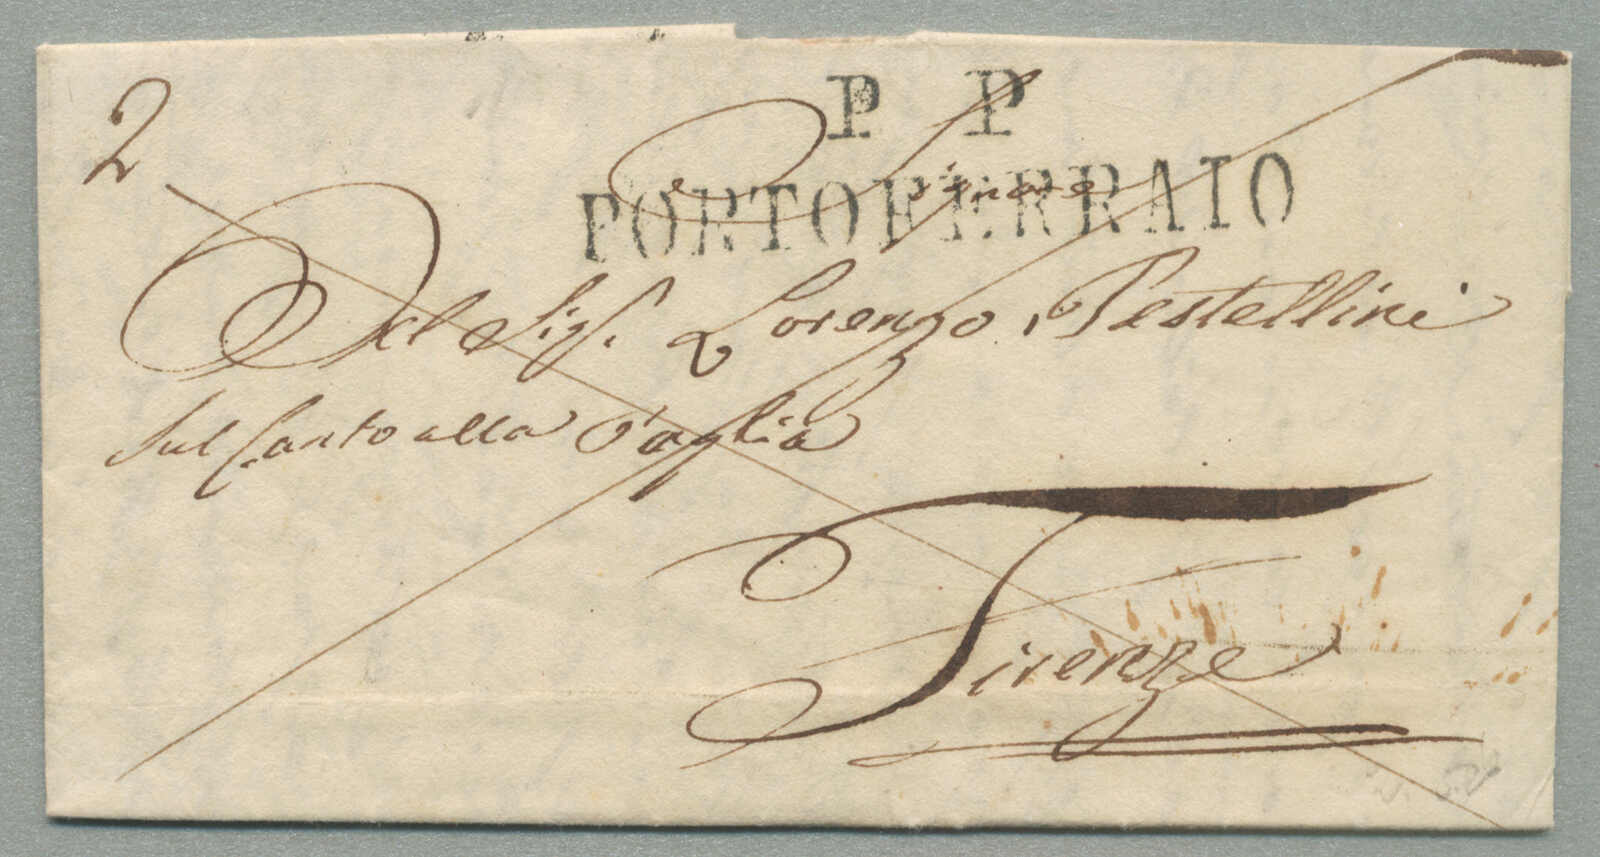 2
P. P.
PORTOFERRAIO
Al Sig.r Lorenzo Pestellini
Sul Canto alla Paglia
Firenze